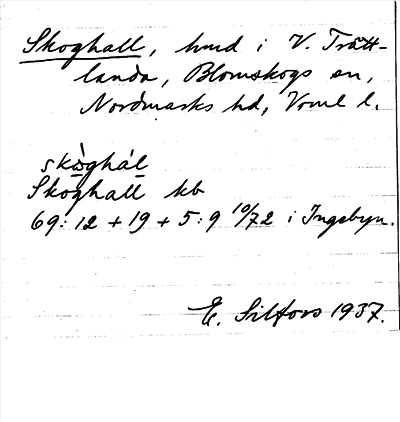 Skoghall, hmd i V. Trätt-
landa, Blomskogs sn,
Nordmarks hd, Verml l.
skòghál
Skoghall kb
69:12 + 19 + 5:9 10/72 i Ingebyn.
E. Silfors 1937.